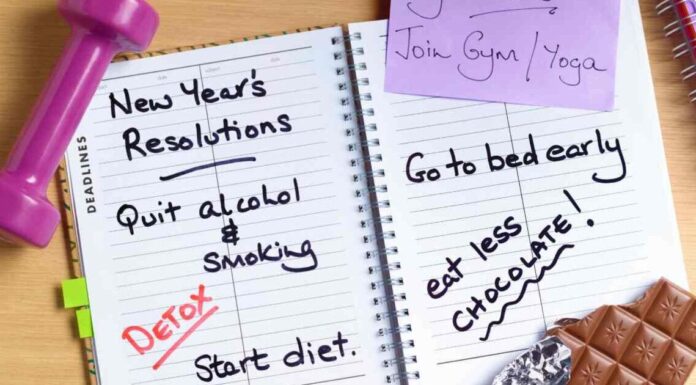 New Year's
Resolutions
DEADLINES
Quit alcohol
&
Smoking
DETOX
Start diet.
Join Gym / Yoga
Go to bed early
eat less
CHOCOLATE!